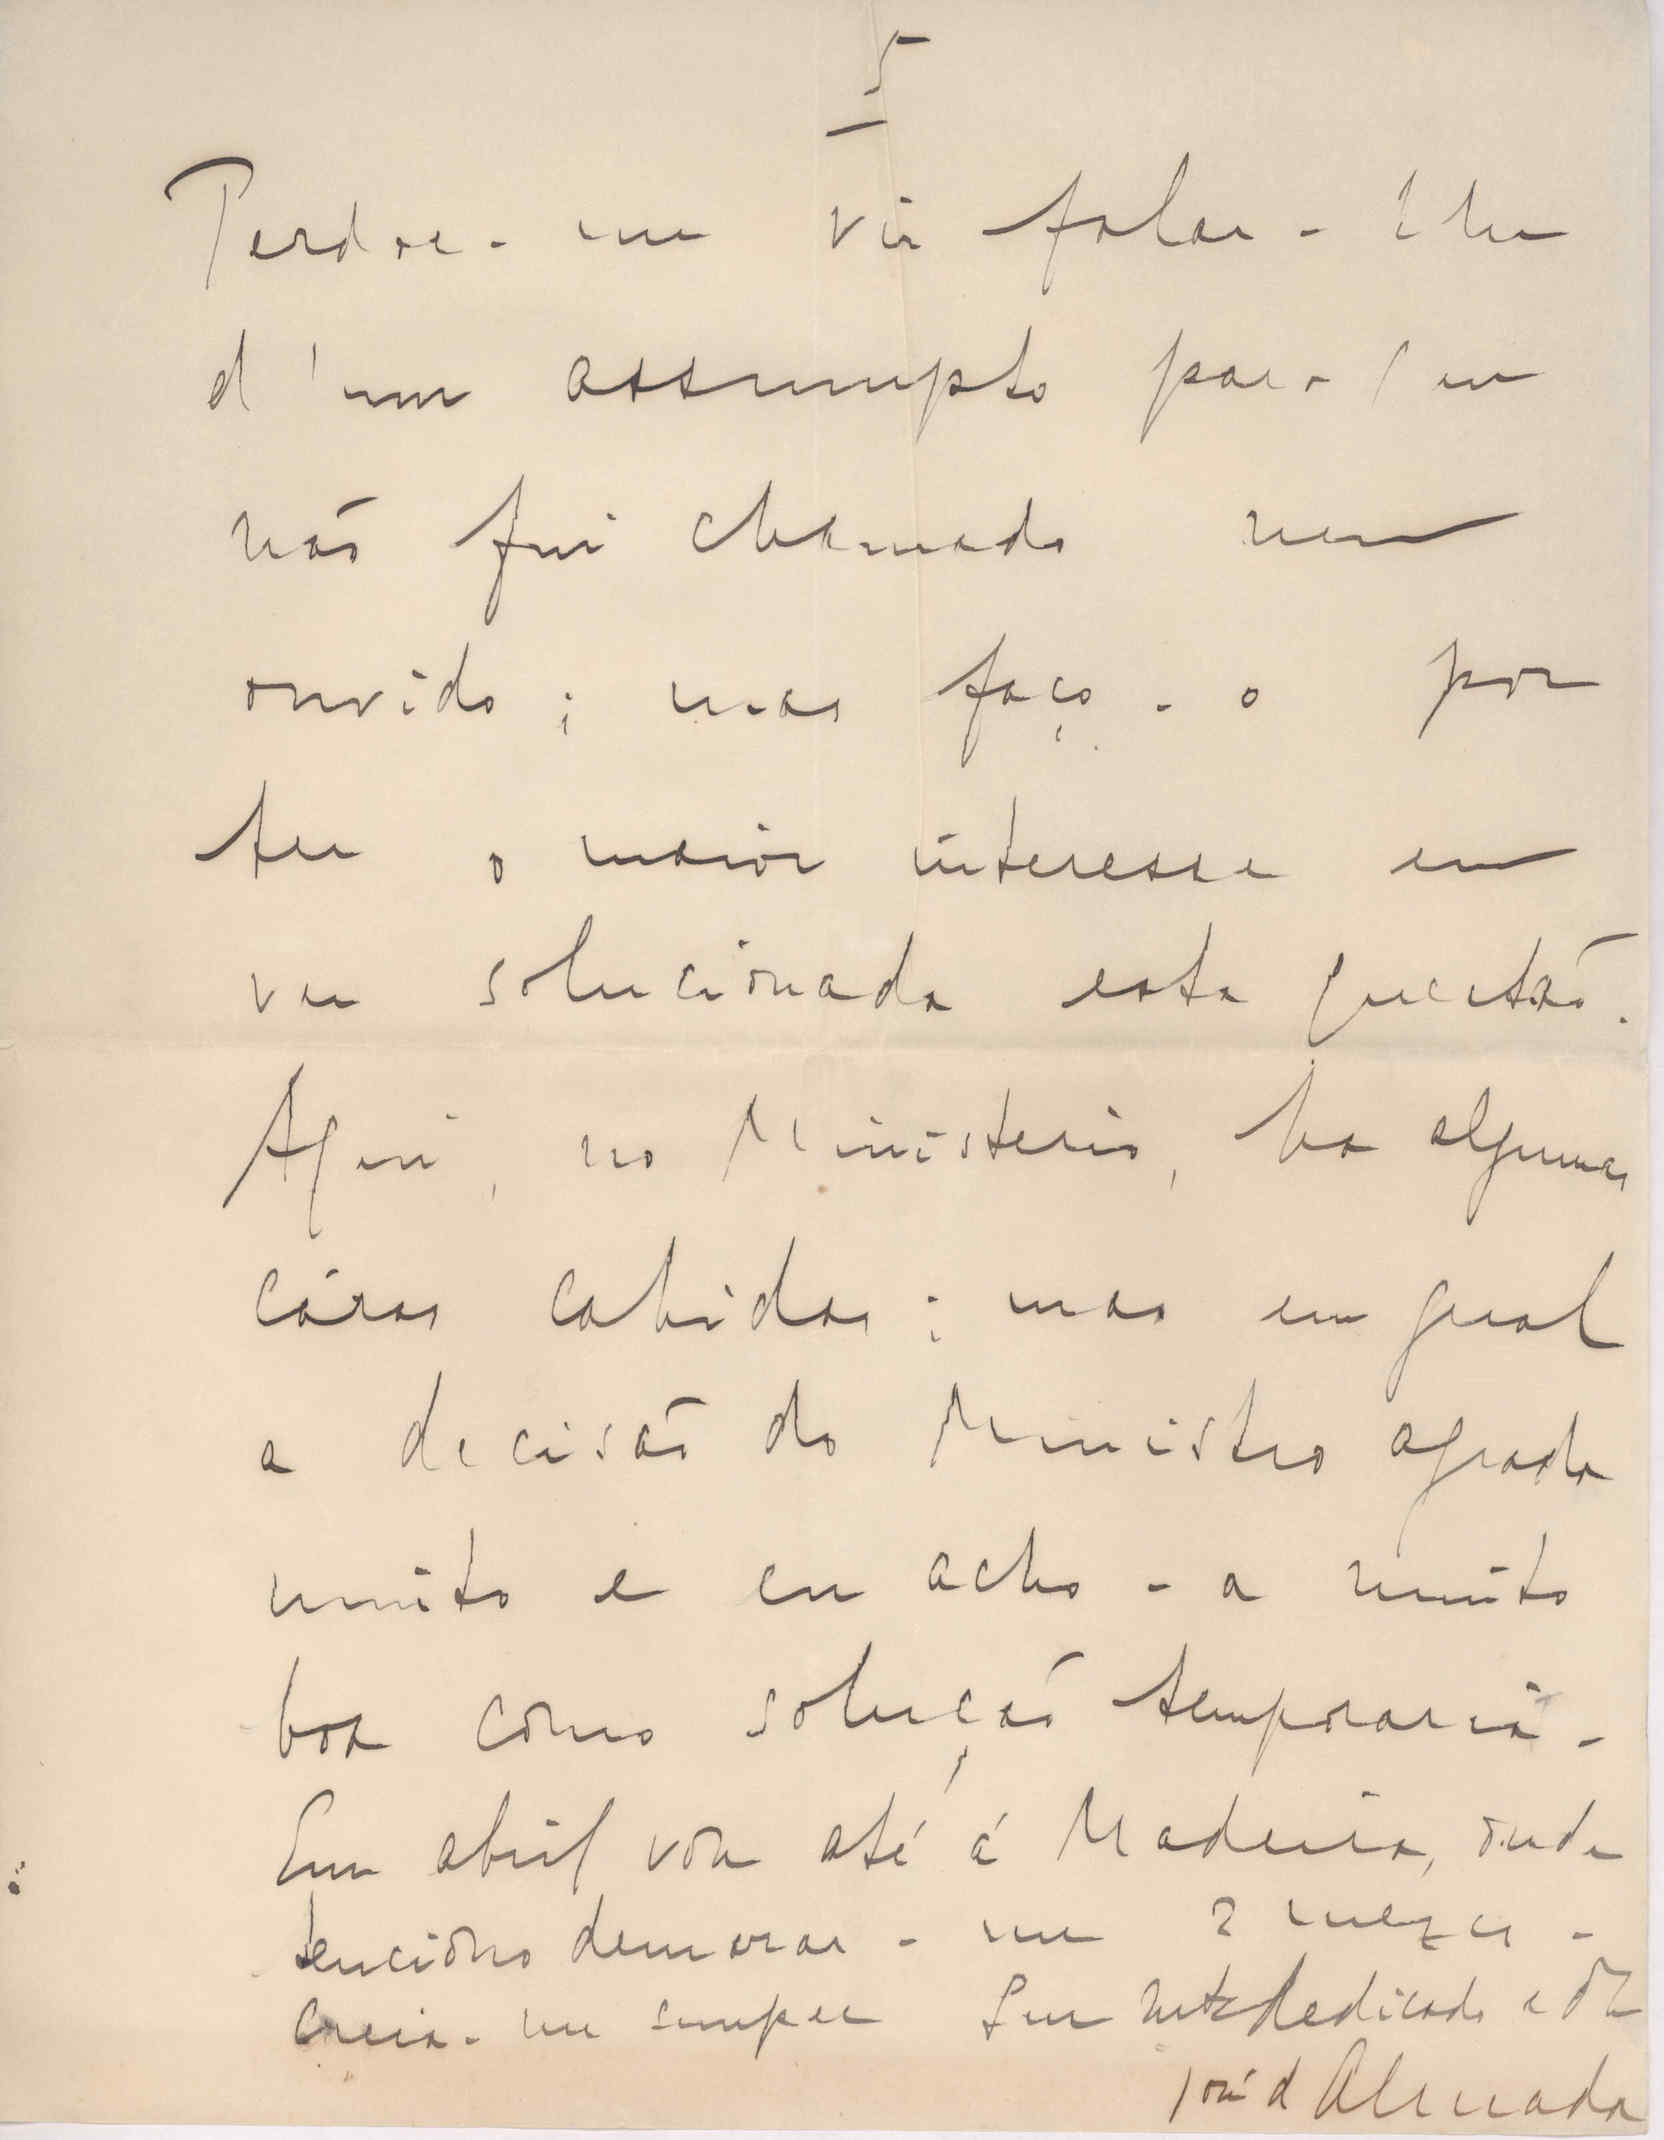 5
Perdoe-me vir falar-lhe
d'um assumpto para que
não fui chamado nem
ouvido; mas faço-o por
ter o maior interesse em
ver solucionada esta questão.
Aqui, no Ministerio, ha algumas
cáras cahidas; mas em geral
a decisão do Ministro agrada
muito e eu acho-a muito
boa como solução temporaria.
Em abril vou até á Madeira, onde
tenciono demorar-me 2 mezes.
Creia-me sempre Seu mto dedicado e
José d'Almada